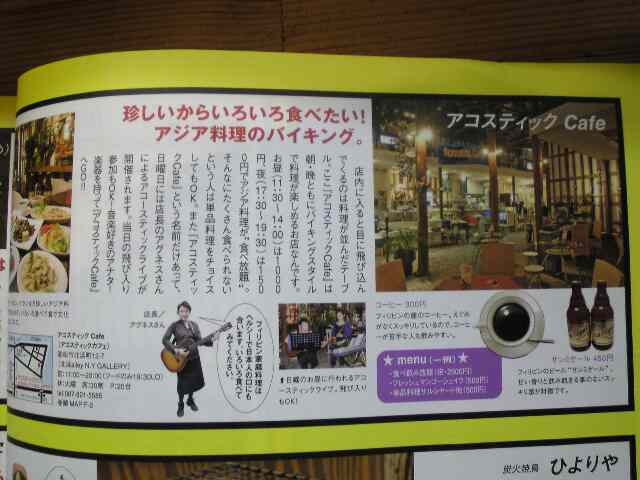 珍しいからいろいろ食べたい!
アジア料理のバイキング。
アコスティック Cafe
店内に入ると目に飛び込ん
でくるのは料理が並んだテーブ
ル。ここ『アコスティックCafe』は
朝・晩ともにバイキングスタイル
で料理が楽しめるお店なんです。
お昼(11:30〜14:00)は1000
円、夜(17:30〜19:30)は150
0円でアジア料理が"食べ放題"。
そんなにたくさん食べられない
という人は単品料理をチョイス
してもOK。また『アコースティッ
クCafe』という名前だけあって、
日曜日には店長のアグネスさん
によるアコースティックライブが
開催されます。当日の飛び入り
参加もOK!音楽好きのアナタ!
楽器を持って『アコスティックCafe』
へGO!!
コーヒー 300円
フィリピンの産のコーヒー。えぐみ
がなくスッキリしているので、コーヒ
ーが苦手な人も飲みやすい。
★ menu (一例) ★
・食べ飲み放題(夜・2500円)
・フレッシュマンゴーシェイク(500円)
サンミゲール 450円
フィリピンのビール"サンミゲール"。
店長/
アグネスさん
フィリピン家庭料理は
ヘルシーで日本人の口にも
合います。いろいろ食べて
みてください。
⬆日曜のお昼に行われるアコ
ースティックライブ。飛び入り
もOK!
アコスティック Cafe
[アコスティックカフェ]
[北浜alley N.Y GALLERY]
炭火焼鳥 ひよりや